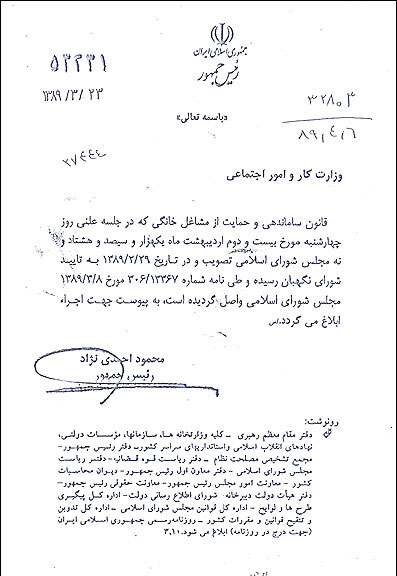 جمهوری اسلامی ایران
رئیس جمهور
۵۳۲۳۱
۱۳۸۹/۳/۲۳
۳۲۸۰۳
۸۹/۴/۶
«باسمه تعالی»
۳۷۴۴۴
وزارت کار و امور اجتماعی
قانون ساماندهی و حمایت از مشاغل خانگی که در جلسه علنی روز
چهارشنبه مورخ بیست و دوم اردیبهشت ماه یکهزار و سیصد و هشتاد و
نه مجلس شورای اسلامی تصویب و در تاریخ ۱۳۸۹/۲/۲۹ به تایید
شورای نگهبان رسیده و طی نامه شماره ۳۰۶/۱۳۳۶۷ مورخ ۱۳۸۹/۳/۸
مجلس شورای اسلامی واصل گردیده است، به پیوست جهت اجراء
ابلاغ می گردد./س
محمود احمدی نژاد
رئیس جمهور
رونوشت:
دفتر مقام معظم رهبری – کلیه وزارتخانه ها، سازمانها، مؤسسات دولتی،
نهادهای انقلاب اسلامی واستانداریهای سراسر کشور– دفتر رئیس جمهور–
مجمع تشخیص مصلحت نظام – دفتر ریاست قوه قضائیه– دفتر ریاست
مجلس شورای اسلامی – دفتر معاون اول رئیس جمهور– دیوان محاسبات
کشور – معاونت امور مجلس رئیس جمهور– معاونت حقوقی رئیس جمهور–
دفتر هیأت دولت دبیرخانه شورای اطلاع رسانی دولت– اداره کل پیگیری
طرح ها و لوایح – اداره کل قوانین مجلس شورای اسلامی – اداره کل تدوین
و تنقیح قوانین و مقررات کشور – روزنامه رسمی جمهوری اسلامی ایران
(جهت درج در روزنامه) ابلاغ می شود.۳،۱۰